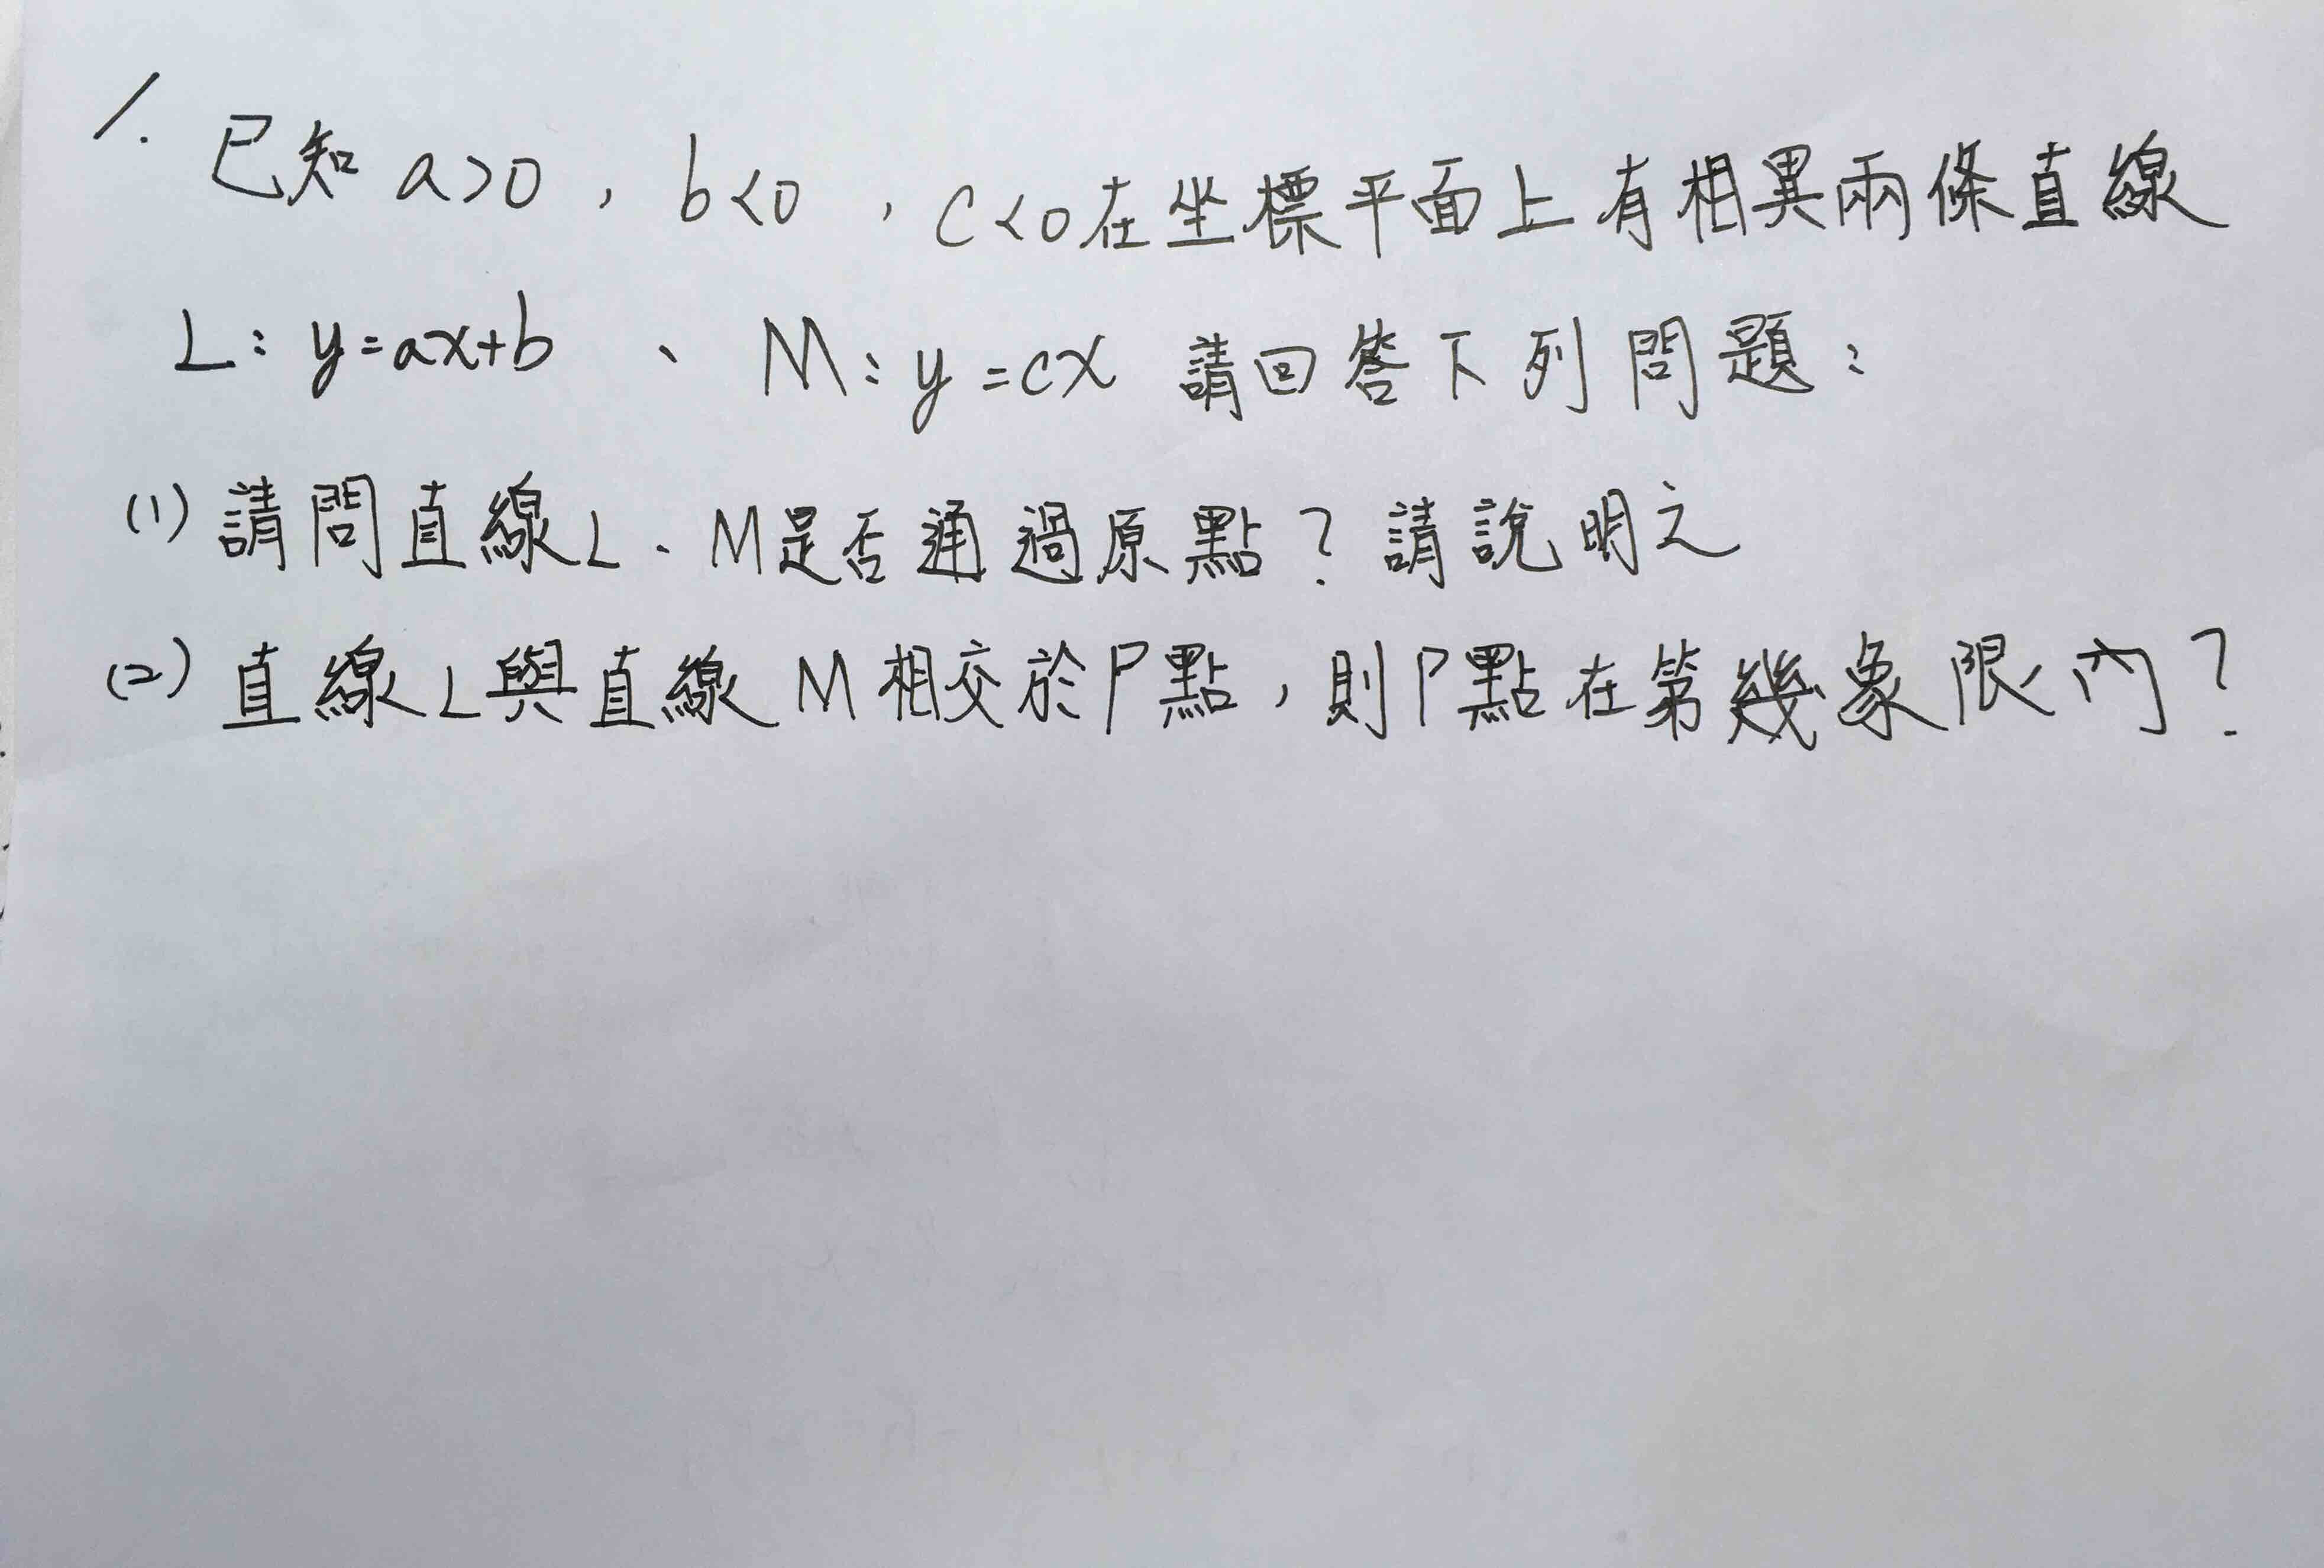 1. 已知 a>0 , b<0 , c<0在坐標平面上有相異兩條直線
L: y=ax+b 、 M: y=cx 請回答下列問題:
(1) 請問直線L、M是否通過原點? 請說明之
(2) 直線L與直線M相交於P點,則P點在第幾象限內?